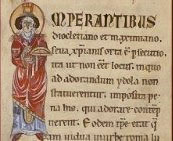 IMPERANTIBUS
diocletiano et maximiano,
seua xpianis orta e psecutio.
ita ut non eet locus. in quo
ad adorandum ydola non
statuerent. imposita pe
na his. qui adorare contep
nerent. Eodem tpr erat q
am uidua urbe roma